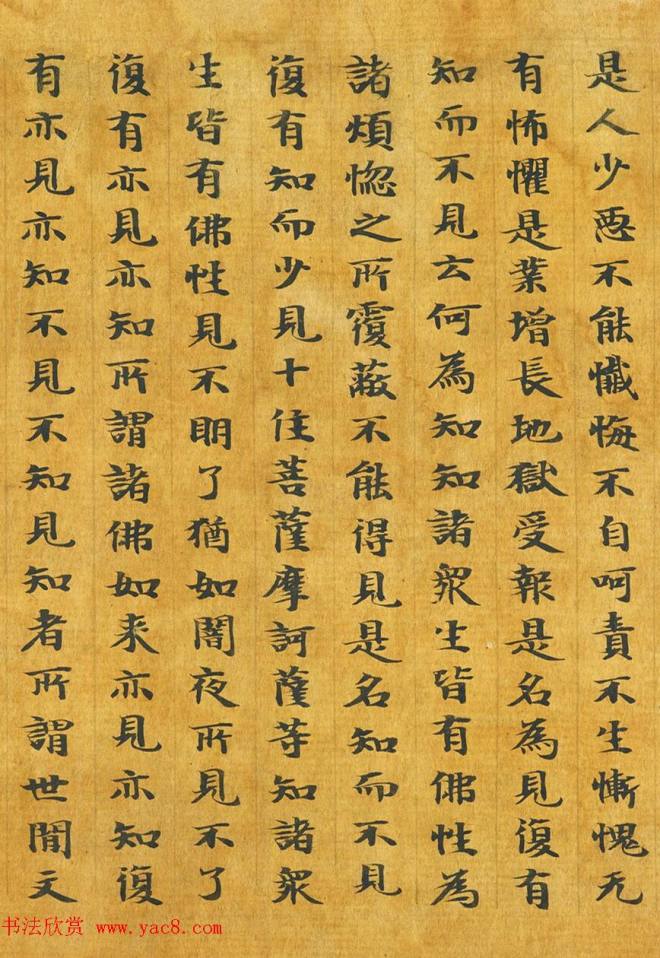 是人少惡不能懺悔不自呵責不生慚愧无
有怖懼是業增長地獄受報是名為見復有
知而不見云何為知知諸衆生皆有佛性為
諸煩惚之所覆蔽不能得見是名知而不見
復有知而少見十住菩薩摩訶薩等知諸衆
生皆有佛性見不明了猶如闇夜所見不了
復有亦見亦知所謂諸佛如来亦見亦知復
有亦見亦知不見不知見知者所謂世閒文
书法欣赏 www.yac8.com